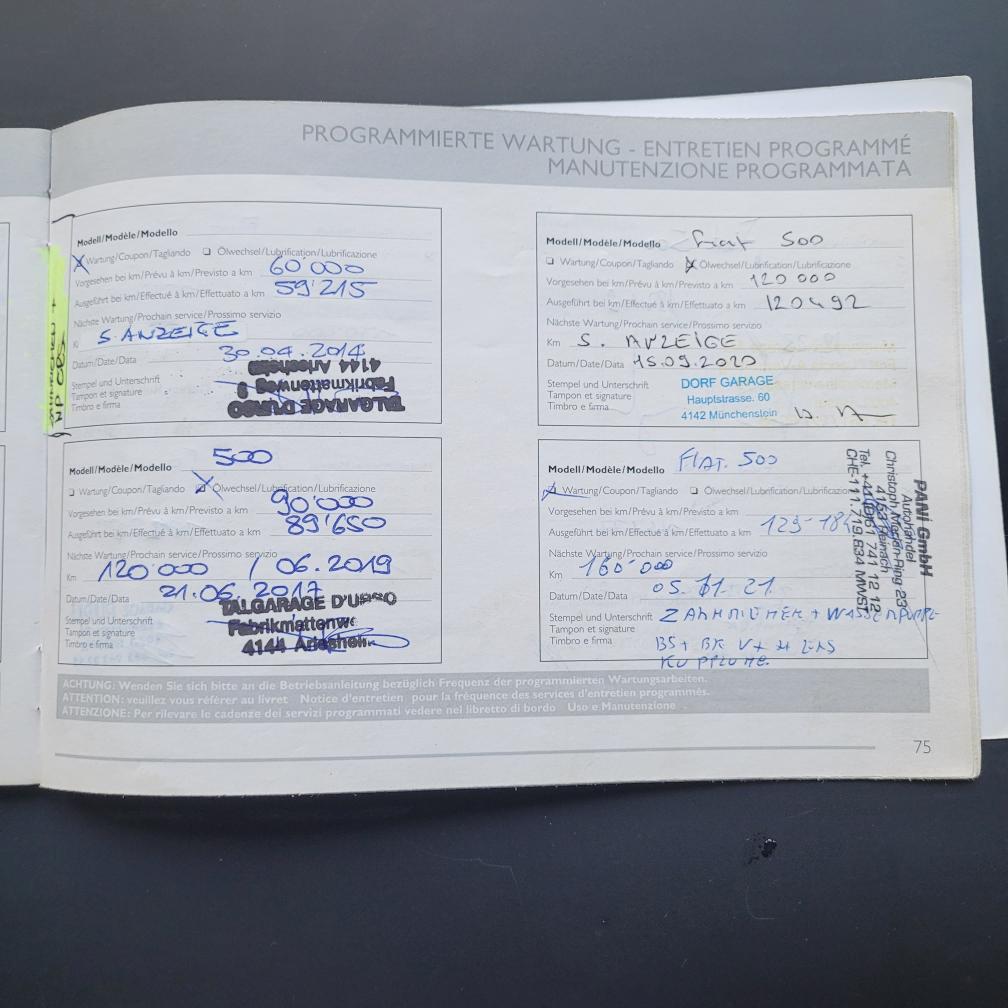 PROGRAMMIERTE WARTUNG - ENTRETIEN PROGRAMMÉ
MANUTENZIONE PROGRAMMATA
Modell/Modèle/Modello
Wartung/Coupon/Tagliando Ölwechsel/Lubrification/Lubrificazione
Vorgesehen bei km/Prévu à km/Previsto a km 60'000
Ausgeführt bei km/Effectué à km/Effettuato a km 59'215
Nächste Wartung/Prochain service/Prossimo servizio
S. ANZEIGE
Datum/Date/Data 30.04.2014
Stempel und Unterschrift
Tampon et signature
Timbro e firma
TALGARAGE D'URSO
Fabrikmattenweg 9
4144 Arlesheim
Modell/Modèle/Modello 500
Wartung/Coupon/Tagliando Ölwechsel/Lubrification/Lubrificazione
Vorgesehen bei km/Prévu à km/Previsto a km 90'000
Ausgeführt bei km/Effectué à km/Effettuato a km 89'650
Nächste Wartung/Prochain service/Prossimo servizio
Km 120'000 / 06.2019
Datum/Date/Data 21.06.2017
Stempel und Unterschrift
Tampon et signature
Timbro e firma
TALGARAGE D'URSO
Fabrikmattenwe
4144 Arlesheim
Modell/Modèle/Modello Fiat 500
Wartung/Coupon/Tagliando Ölwechsel/Lubrification/Lubrificazione
Vorgesehen bei km/Prévu à km/Previsto a km 120 000
Ausgeführt bei km/Effectué à km/Effettuato a km 120492
Nächste Wartung/Prochain service/Prossimo servizio
Km S. ANZEIGE
Datum/Date/Data 15.09.2020
Stempel und Unterschrift
Tampon et signature
Timbro e firma
DORF GARAGE
Hauptstrasse. 60
4142 Münchenstein
Modell/Modèle/Modello FIAT. 500
Wartung/Coupon/Tagliando Ölwechsel/Lubrification/Lubrificazio
Vorgesehen bei km/Prévu à km/Previsto a km
Ausgeführt bei km/Effectué à km/Effettuato a km
Nächste Wartung/Prochain service/Prossimo servizio
Km 160'000
Datum/Date/Data 05.11.21
Stempel und Unterschrift ZAHNRIEMEN + WASSERPUMPE
Tampon et signature
Timbro e firma
PANI GmbH
Autohandel
Christoph Merian-Ring 23
4153 Reinach
Tel. +41(0)61 741 12 12
CHE-111.719.834 MWST
ACHTUNG: Wenden Sie sich bitte an die Betriebsanleitung bezüglich Frequenz der programmierten Wartungsarbeiten.
ATTENTION: veuillez vous référer au livret Notice d'entretien pour la fréquence des services d'entretien programmés.
ATTENZIONE: Per rilevare le cadenze dei servizi programmati vedere nel libretto di bordo Uso e Manutenzione .
75